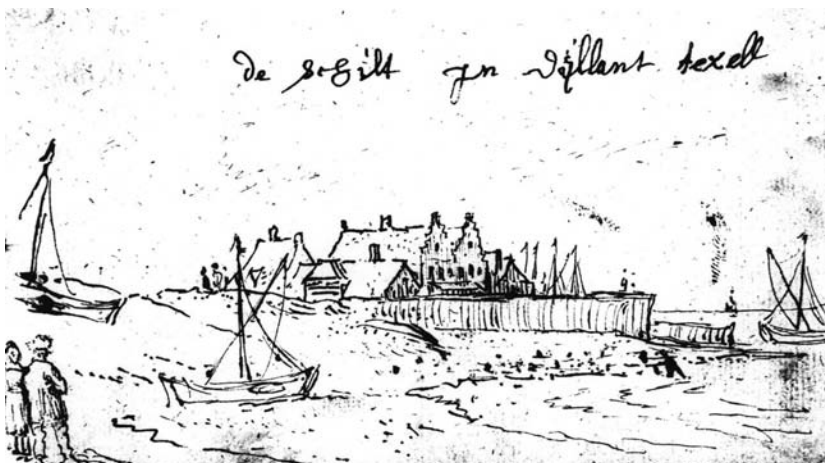 de schilt jn Eijllant texell